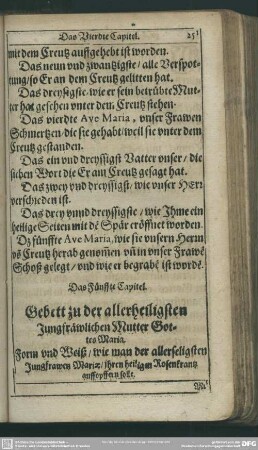 Das Vierdte Capitel. 251
mit dem Creutz auffgehebt ist worden.
Das neun vnd zwantzigste / alle Verspot-
tung / so Er an dem Creutz gelitten hat.
Das dreysigste / wie er sein betrübte Mut-
ter hat gesehen vnter dem Creutz stehen.
Das vierdte Ave Maria, vnser Frawen
Schmertzen / die sie gehabt / weil sie vnter dem
Creutz gestanden.
Das ein vnd dreyssigst Vatter vnser / die
siben Wort die Er am Creutz gesagt hat.
Das zwey vnd dreyssigst / wie vnser HErr
verschieden ist.
Das drey vnnd dreyssigste / wie Ihme ein
heilige Seiten mit dē Spär eröffnet worden.
Dz fünffte Ave Maria, wie sie vnsern Herrn
võ Creutz herab genom̃en vñ in vnser Frawē
Schoß gelegt / vnd wie er begrabē ist wordē.
Das Fünffte Capitel.
Gebett zu der allerheiligsten
Jungfräwlichen Mutter Got-
tes Maria.
Form vnd Weiß / wie man der allerseligsten
Jungfrawen Mariæ / ihren heiligen Rosenkrantz
auffopffern solle.